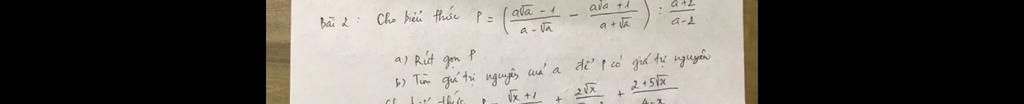 Bài 2 : Cho biểu thức P = ( (a√a - 1)/(a - √a) - (a√a + 1)/(a + √a) ) : (a+2)/(a-2)
a) Rút gọn P
b) Tìm giá trị nguyên của a để P có giá trị nguyên
biểu thức (√x + 1) + 2√x + (2 + 5√x)/(4-x)